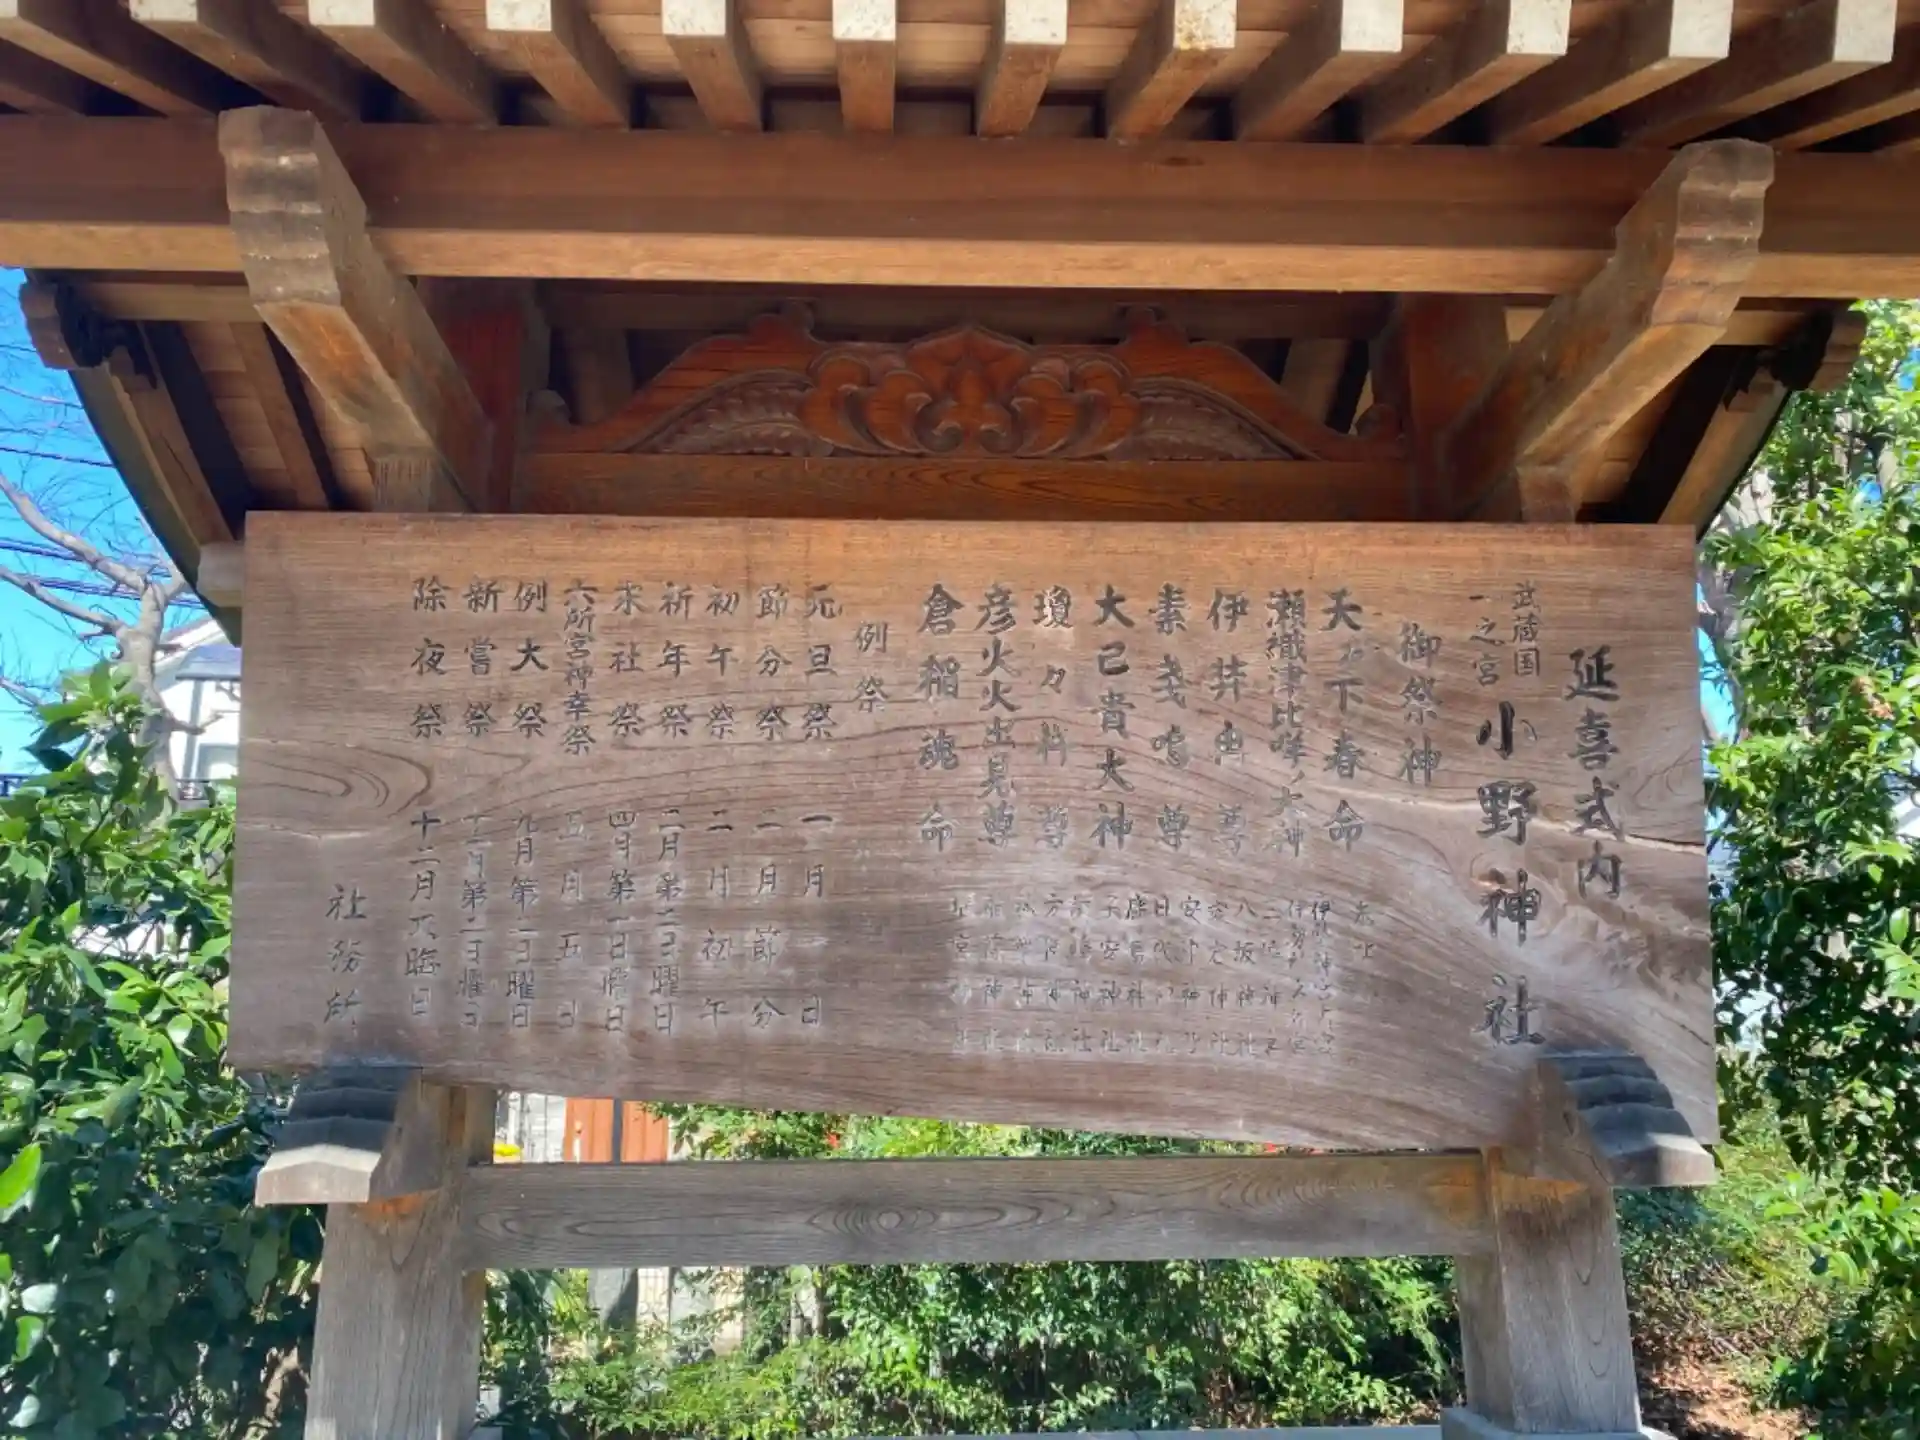 延喜式内
武蔵国
一之宮
小野神社
御祭神
天乃下春命
瀬織津比咩ノ大神
伊弉冉尊
素戔嗚尊
大己貴大神
瓊々杵尊
彦火火出見尊
倉稲魂命
末社
三峰神社
八坂神社
子安神社
例祭
元旦祭 一月一日
節分祭 二月節分
初午祭 二月初午
祈年祭 二月第二日曜日
末社祭 四月第一日曜日
六所宮神幸祭 五月五日
例大祭 九月第二日曜日
新嘗祭 十一月第二日曜日
除夜祭 十二月大晦日
社務所